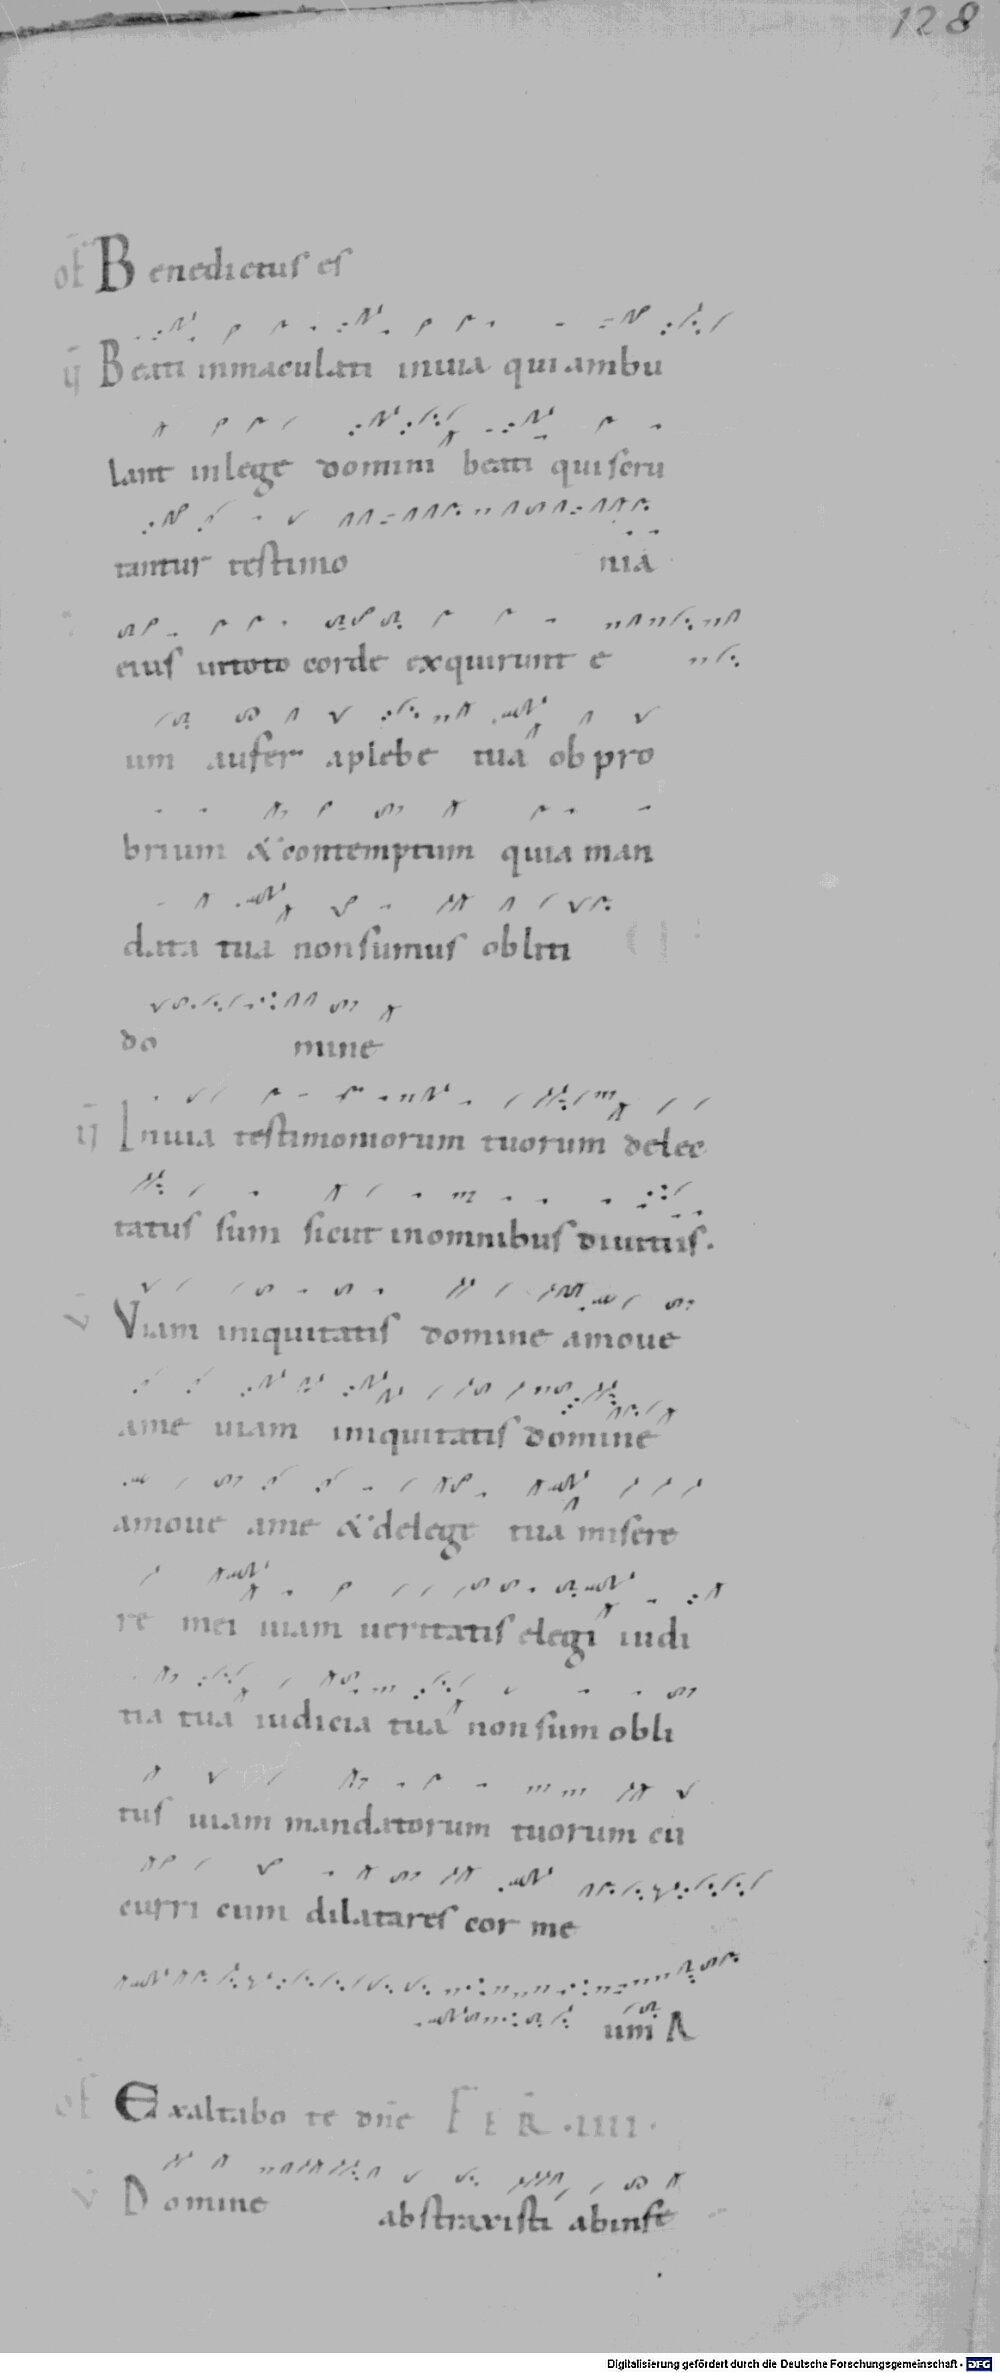 128
of Benedictus es
v̄ Beati inmaculati inuia qui ambu
lant inlege domini beati qui scru
tantur testimo nia
eius intoto corde exquirunt e
um aufer aplebe tua obpro
brium & contemptum quia man
data tua non sumus obliti
do mine
ij Inuia testimoniorum tuorum delec
tatus sum sicut inomnibus diuitiis.
v̄ Viam iniquitatis domine amoue
ame uiam iniquitatis domine
amoue ame & delege tua misere
re mei uiam ueritatis elegi iudi
tia tua iudicia tua non sum obli
tus uiam mandatorum tuorum cu
curri cum dilatares cor me
um A
of Exaltabo te dñe FER .IIII.
v̄ Domine abstraxisti abinfe
Digitalisierung gefördert durch die Deutsche Forschungsgemeinschaft - DFG